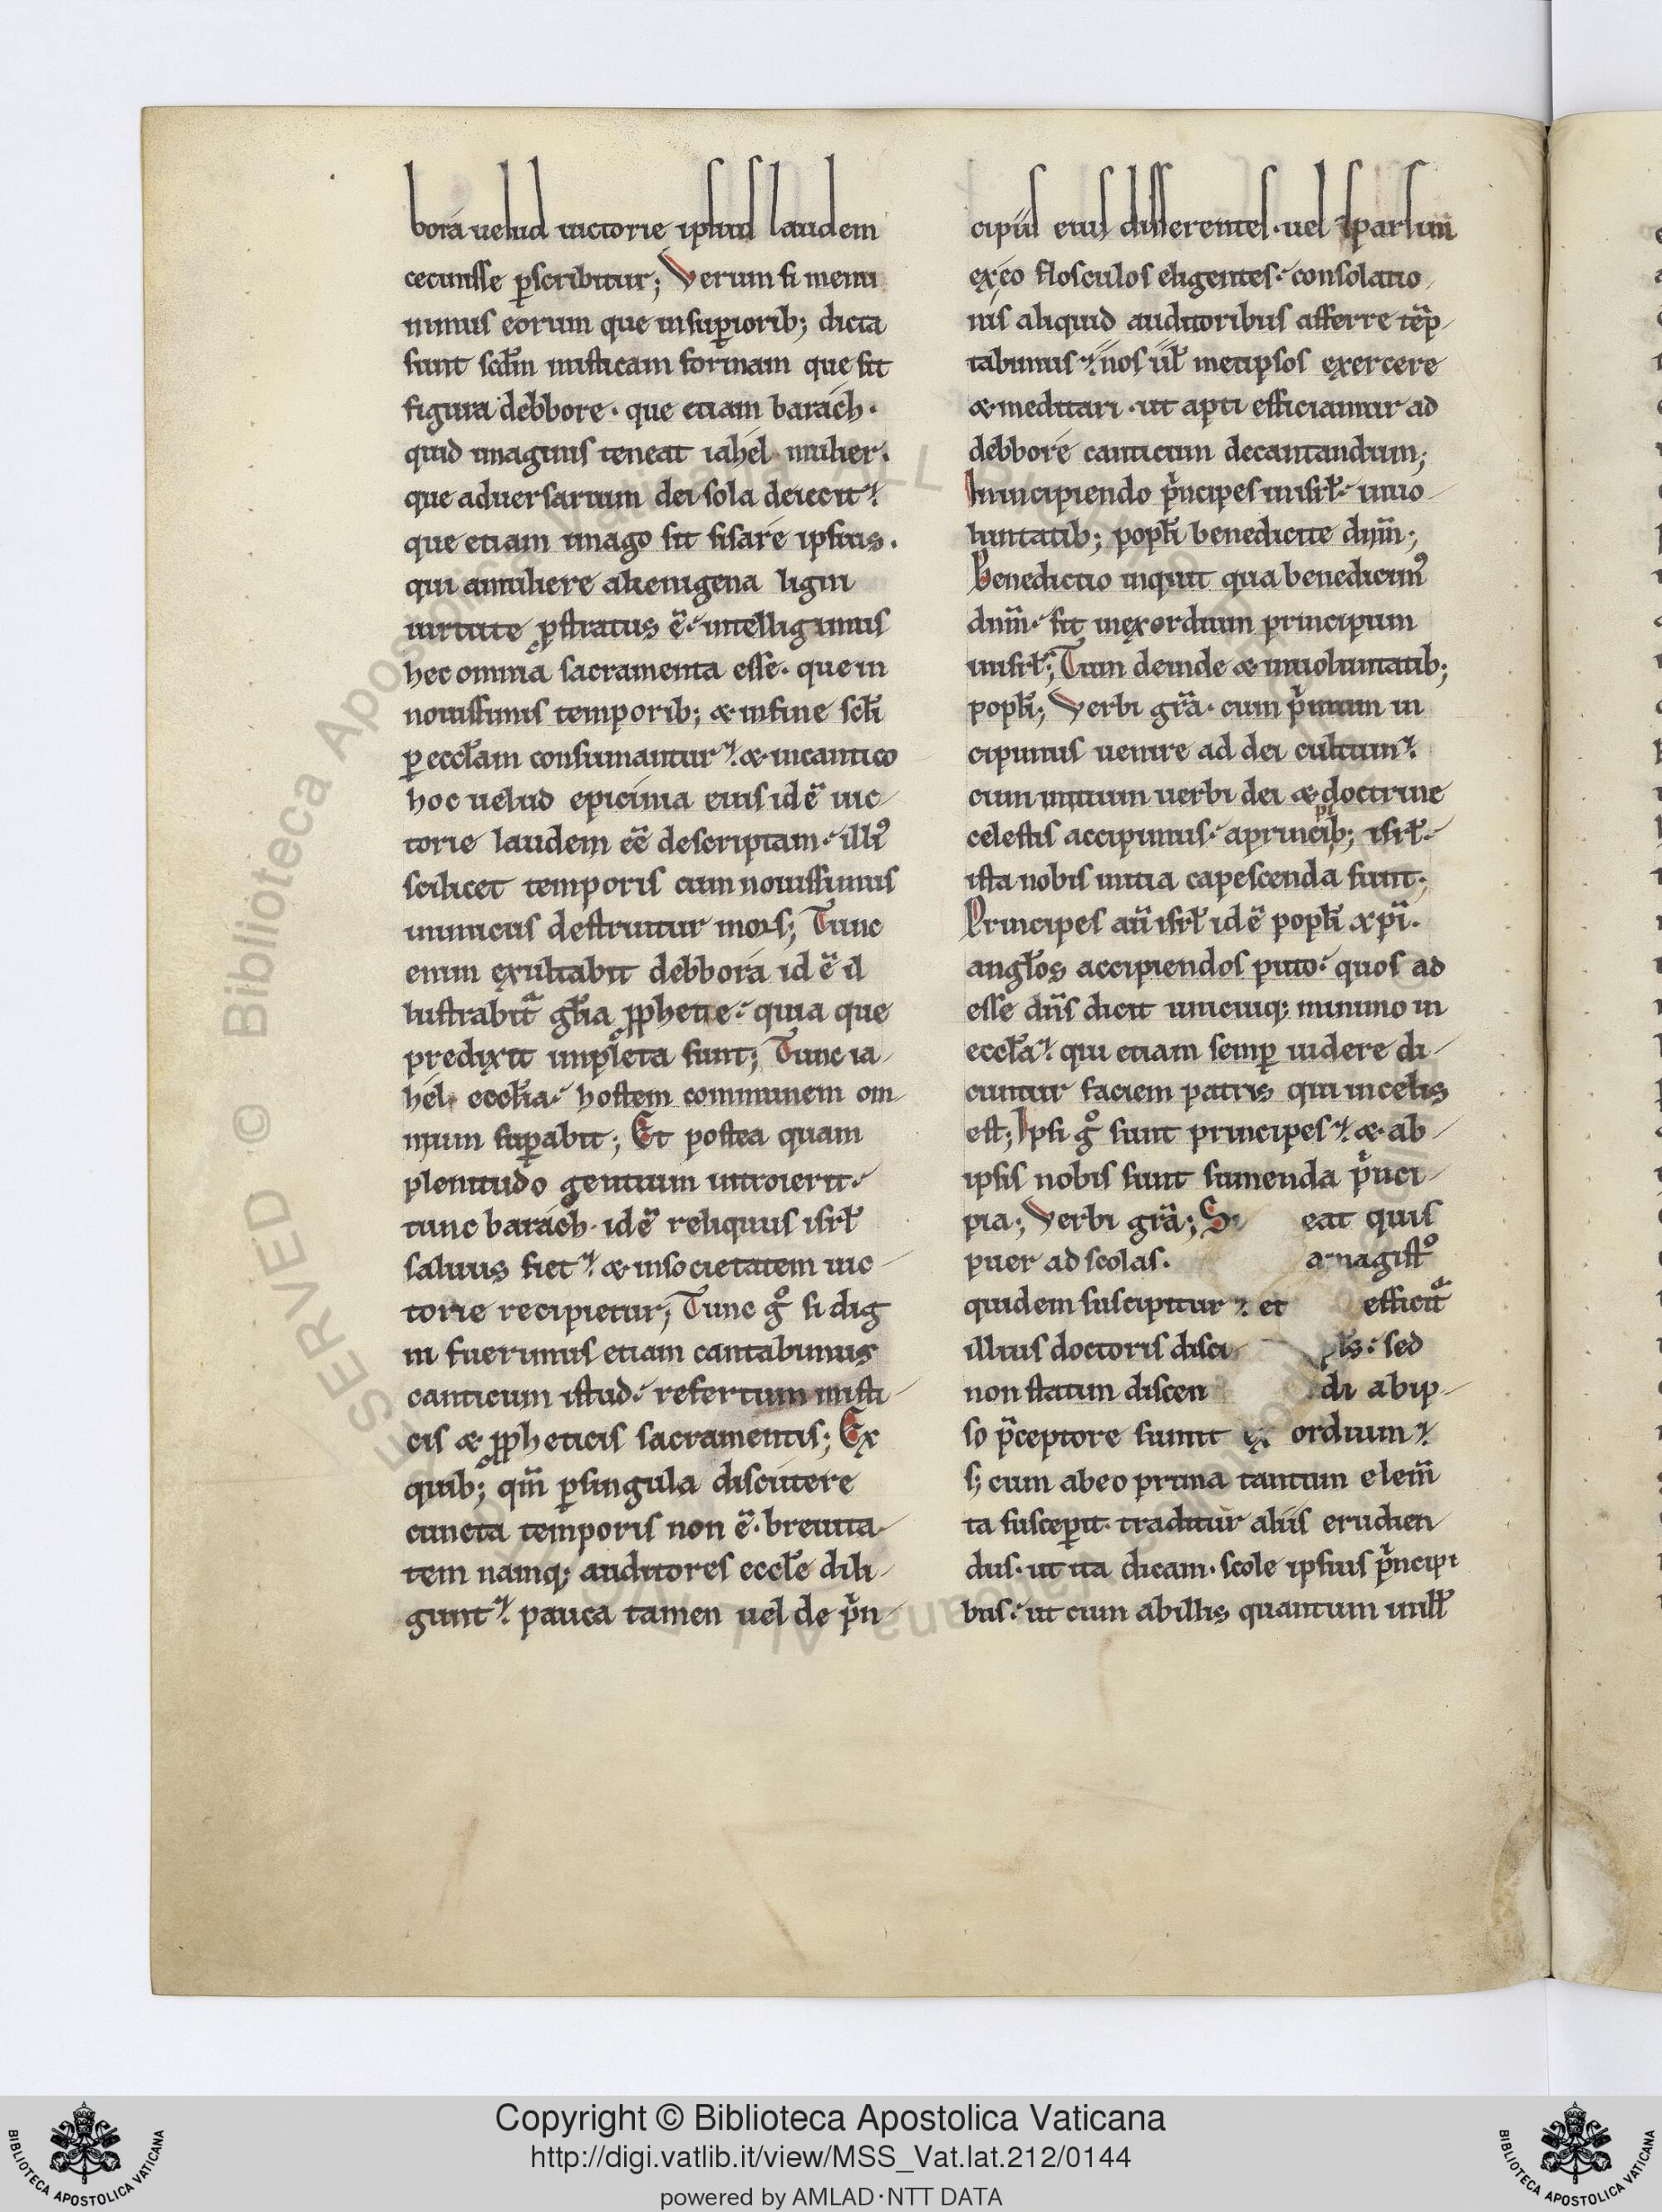 bora uelud uictorie ipsius laudem
cecinisse p̲scribitur; Verum si memi
nimus eorum que insup̲iorib; dicta
sunt scd̄m misticam formam que sit
figura debbore· que etiam barach·
quid imaginis teneat iahel· mulier·
que aduersarium dei sola deiecit·
que etiam imago sit sisare ipsius.
qui amuliere alienigena ligni
uirtute p̲stratus ē· intelligimus
hec omnia sacramenta esse· que in
nouissimis temporib; & infine scl̄i
p̲ eccl̄am consumantur· & incantico
hoc uelud epicinia eius id ē uic
torie laudem eē descriptam· illi9
scilicet temporis cum nouissimus
inimicus destruitur mors; Tunc
enim exultabit debbora id ē il
lustrabit̄ gl̄ia p̲phetie· quia que
predixit impleta sunt; Tunc ia
hel· eccl̄ia· hostem communem om
nium sup̲abit; Et postea quam
plenitudo gentium introierit·
tunc barach· id ē reliquus isrl̄
saluus fiet· & insocietatem uic
torie recipietur; Tunc gͦ si dig
ni fuerimus etiam cantabimus
canticum istud· refertum misti
cis & p̲pheticis sacramentis; Ex
quib; qm̄ p̲singula discutere
cuncta temporis non ē· breuita
tem namq; auditores eccl̄e dili
gunt· pauca tamen uel de p̍n
cipiis eius disserentes· uel sparsim
exeo flosculos eligentes· consolatio
nis aliquid auditoribus afferre tēp
tabimus· nos ūl metipsos exercere
& meditari· ut apti efficiamur ad
debbore canticum decantandum;
Inincipiendo p̍ncipes inisrl̄· inuo
luntatib; popl̄i benedicite dnm̄;
Benedictio inquit qua benedicim9
dnm̄· sit inexordium principum
inisrl̄; Tum deinde & inuoluntatib;
popl̄i; Verbi gr̄a· cum p̍mum in
cipimus uenire ad dei cultum·
cum initium uerbi dei & doctrine
celestis accipimus· aprincipib; isrl̄·
ista nobis initia capescenda sunt;
Principes aū isrl̄ id ē popl̄i xp̄i·
angl̄os accipiendos puto· quos ad
esse dn̄s dicit unicuiq; minimo in
eccl̄a· qui etiam semp̲ uidere di
cuntur faciem patris qui incelis
est; Ipsi gͦ sunt principes· & ab
ipsis nobis sunt sumenda p̍nci
pia; Verbi gr̄a; S eat quis
puer ad scolas· amagistͦ
quidem suscipitur· et efficit̄
illius doctoris disci pl̄s· sed
non statim discen di abip
so p̄ceptore sumit ex ordium·
s; cum abeo prima tantum elem̄
ta suscep̲it· traditur aliis erudien
dus· ut ita dicam· scole ipsius p̍ncipi
bus· ut cum abillis quantum
Copyright © Biblioteca Apostolica Vaticana
http://digi.vatlib.it/view/MSS_Vat.lat.212/0144
powered by AMLAD·NTT DATA
BIBLIOTECA APOSTOLICA VATICANA
BIBLIOTECA APOSTOLICA VATICANA